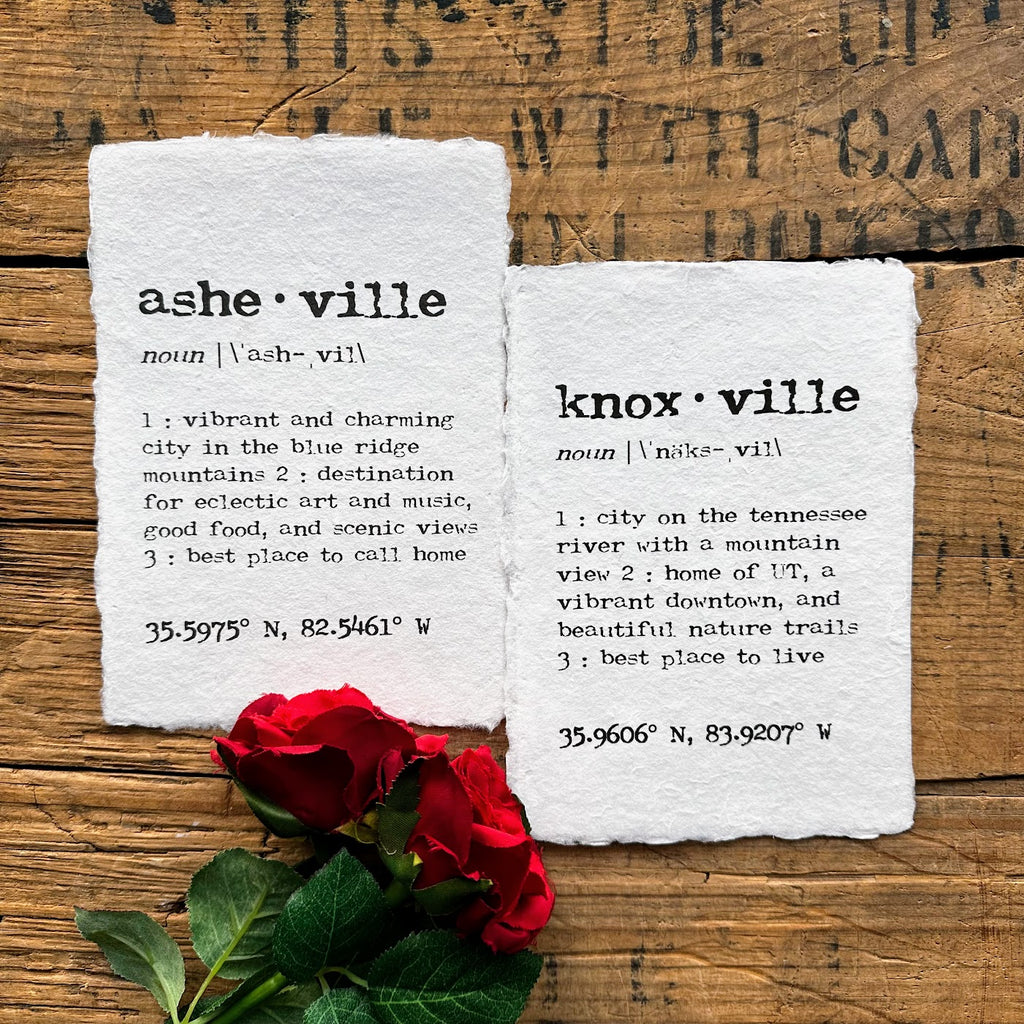 WITH CAR
ashe·ville
noun |\ˈash-ˌvil\
1 : vibrant and charming
city in the blue ridge
mountains 2 : destination
for eclectic art and music,
good food, and scenic views
3 : best place to call home
35.5975° N, 82.5461° W
knox·ville
noun |\ˈnäks-ˌvil\
1 : city on the tennessee
river with a mountain
view 2 : home of UT, a
vibrant downtown, and
beautiful nature trails
3 : best place to live
35.9606° N, 83.9207° W